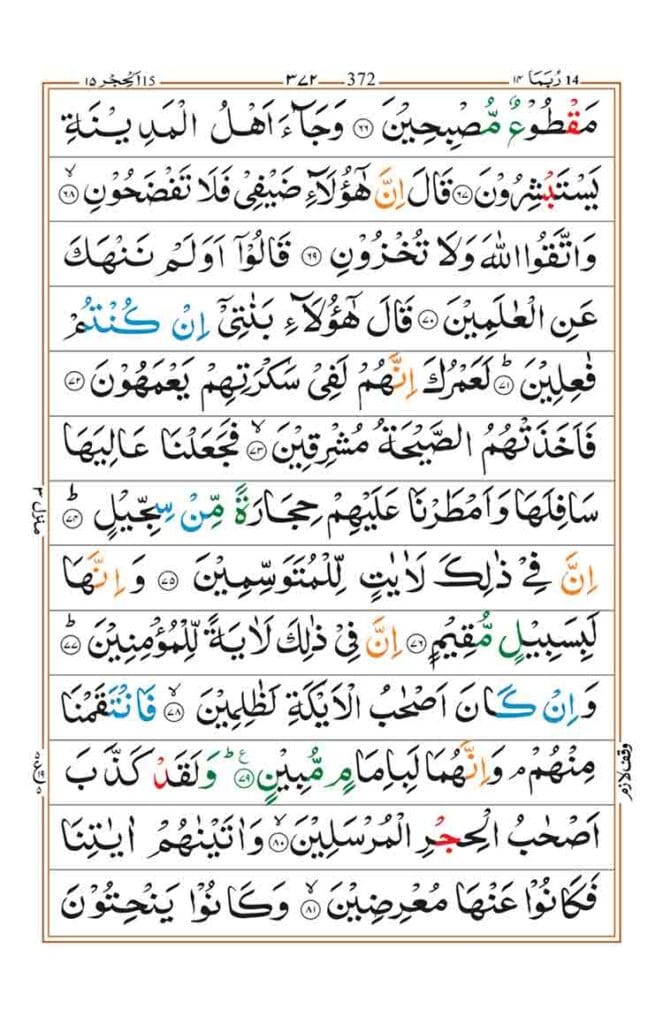 15 اَلْحِجْر ١٥ ٣٧٢ 372 رُبَمَا ١٤ 14
مَقْطُوْعٌ مُّصْبِحِيْنَ ۝٦٦ وَجَآءَ اَهْلُ الْمَدِيْنَةِ
يَسْتَبْشِرُوْنَ ۝٦٧ قَالَ اِنَّ هٰٓؤُلَآءِ ضَيْفِيْ فَلَا تَفْضَحُوْنِ ۙ۝٦٨
وَاتَّقُوا اللّٰهَ وَلَا تُخْزُوْنِ ۝٦٩ قَالُوْٓا اَوَلَمْ نَنْهَكَ
عَنِ الْعٰلَمِيْنَ ۝٧٠ قَالَ هٰٓؤُلَآءِ بَنٰتِيْٓ اِنْ كُنْتُمْ
فٰعِلِيْنَ ؕ۝٧١ لَعَمْرُكَ اِنَّهُمْ لَفِيْ سَكْرَتِهِمْ يَعْمَهُوْنَ ۝٧٢
فَاَخَذَتْهُمُ الصَّيْحَةُ مُشْرِقِيْنَ ۙ۝٧٣ فَجَعَلْنَا عَالِيَهَا
سَافِلَهَا وَاَمْطَرْنَا عَلَيْهِمْ حِجَارَةً مِّنْ سِجِّيْلٍ ؕ۝٧٤
اِنَّ فِيْ ذٰلِكَ لَاٰيٰتٍ لِّلْمُتَوَسِّمِيْنَ ۝٧٥ وَاِنَّهَا
لَبِسَبِيْلٍ مُّقِيْمٍ ۝٧٦ اِنَّ فِيْ ذٰلِكَ لَاٰيَةً لِّلْمُؤْمِنِيْنَ ؕ۝٧٧
وَاِنْ كَانَ اَصْحٰبُ الْاَيْكَةِ لَظٰلِمِيْنَ ۙ۝٧٨ فَانْتَقَمْنَا
مِنْهُمْ ۘ وَاِنَّهُمَا لَبِاِمَامٍ مُّبِيْنٍ ؕ۝٧٩ ع وَلَقَدْ كَذَّبَ
اَصْحٰبُ الْحِجْرِ الْمُرْسَلِيْنَ ۙ۝٨٠ وَاٰتَيْنٰهُمْ اٰيٰتِنَا
فَكَانُوْا عَنْهَا مُعْرِضِيْنَ ۙ۝٨١ وَكَانُوْا يَنْحِتُوْنَ
منزل ٣
وقف لازم